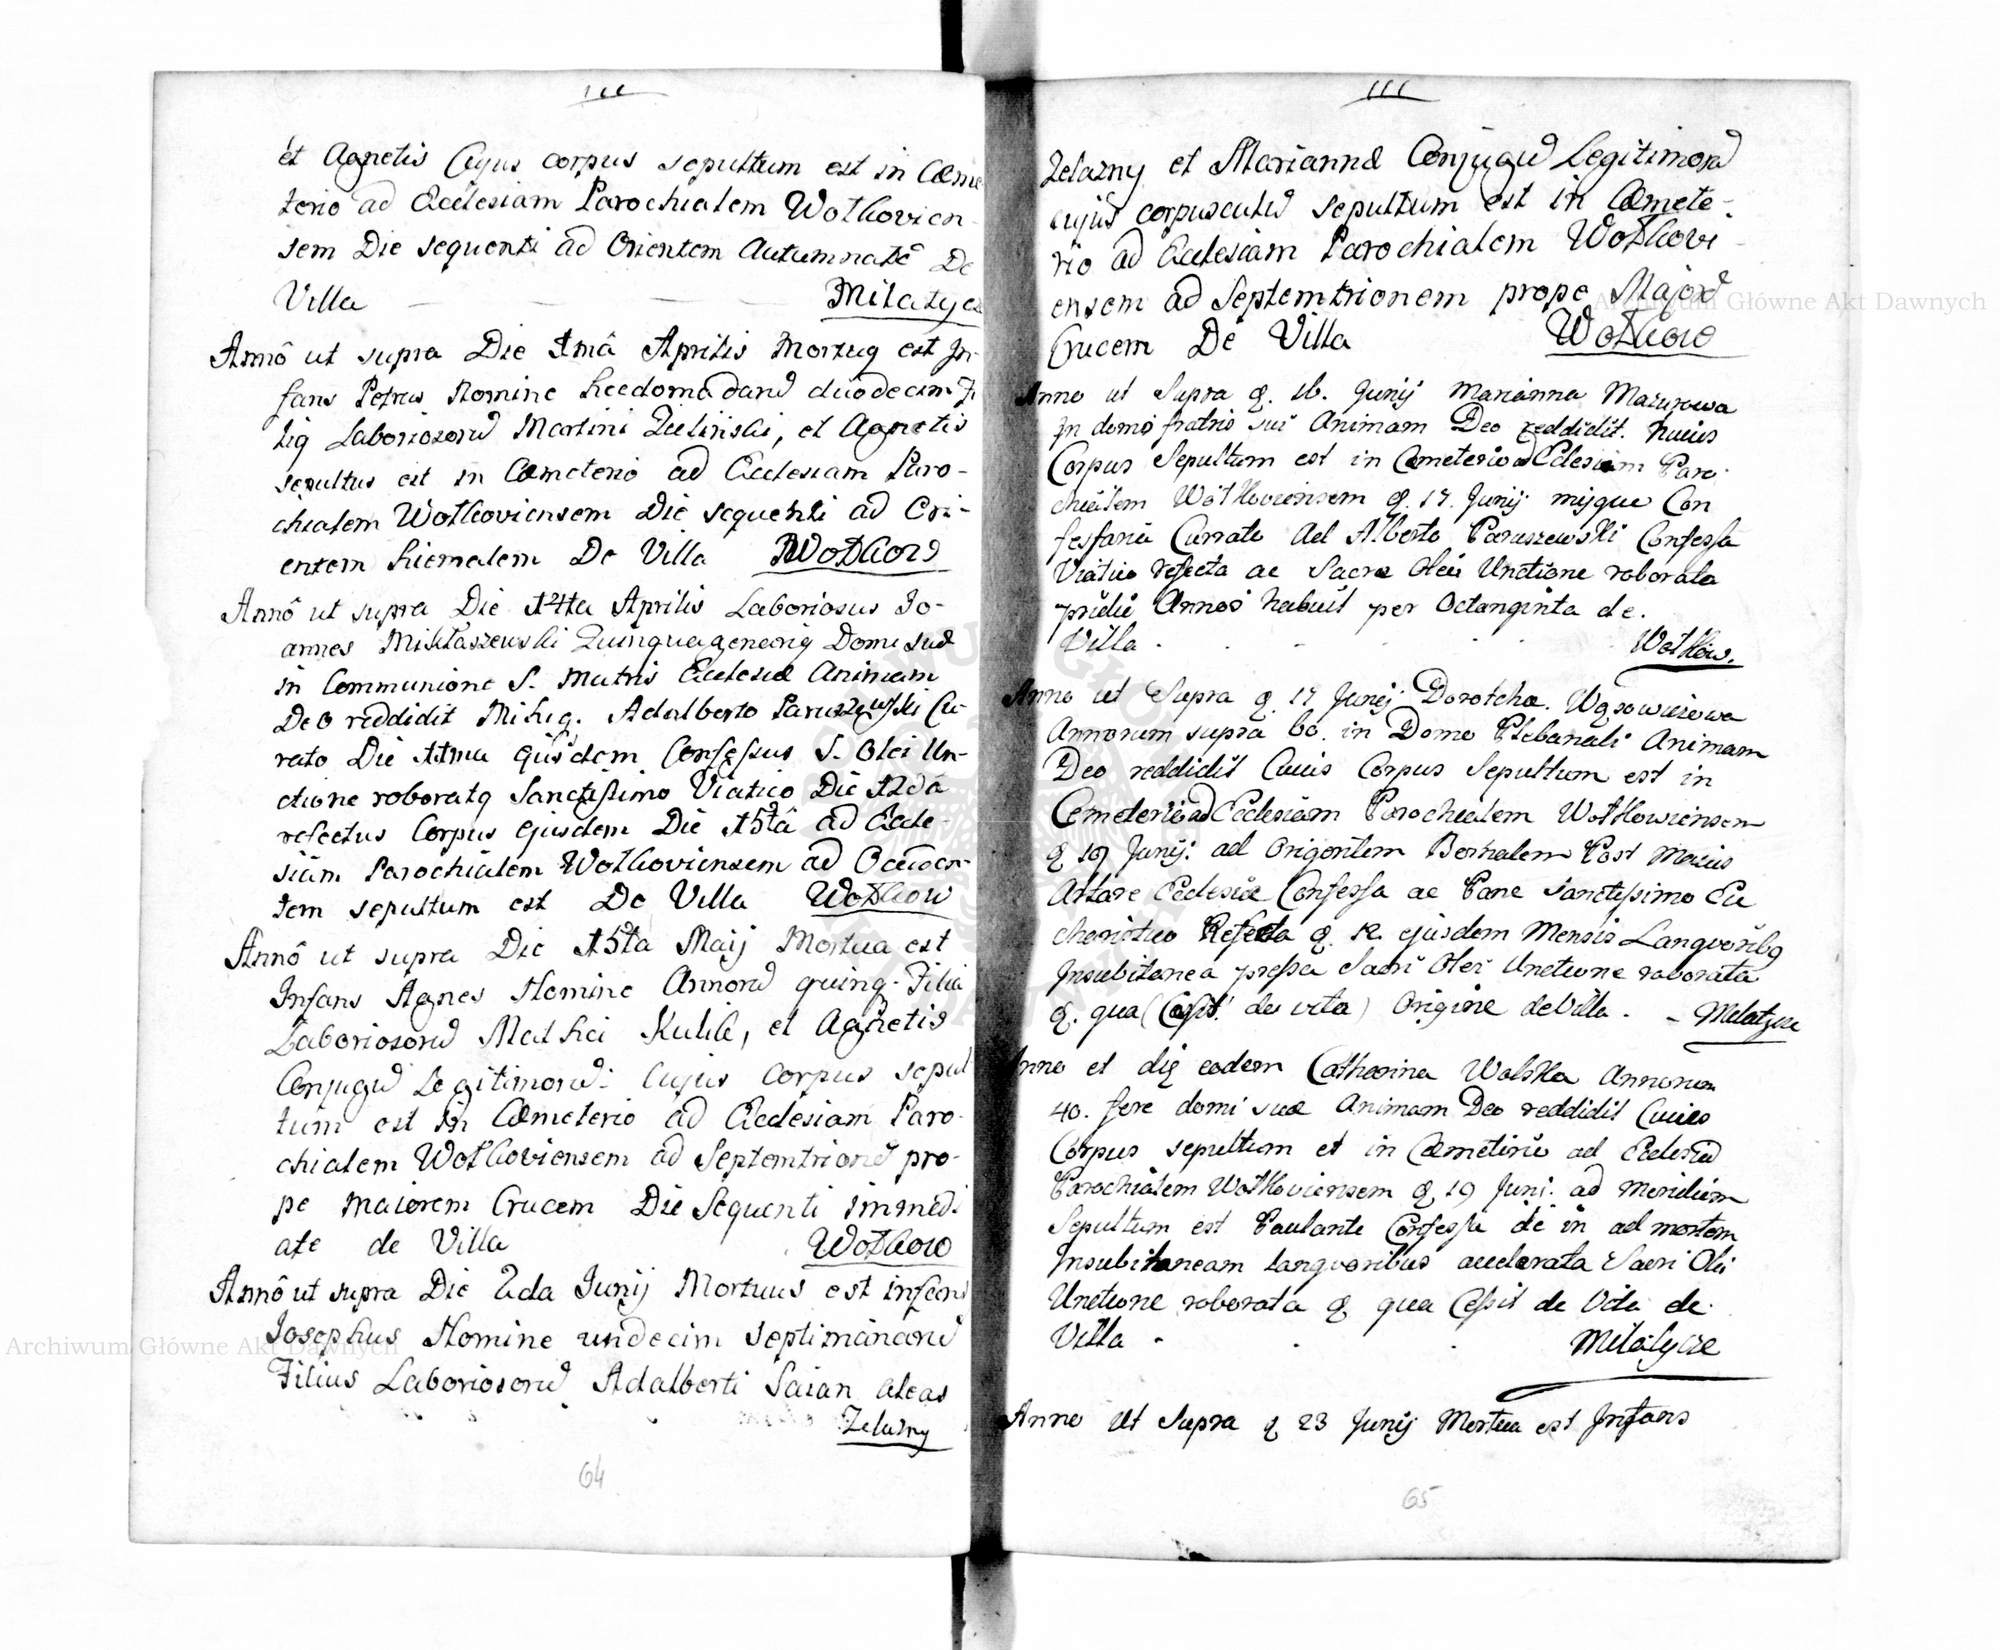 et Agnetis Cujus corpus sepultum est in Cæme
terio ad Ecclesiam Parochialem Wołkovien-
sem Die sequenti ad Orientem Autumnalē De
Villa — — — — Milatycze
Annô ut supra Die 1mâ Aprilis Mortuq est In-
fans Petrus Nomine hebdomadarū duodecim Fi
liq Laboriosorū Martini Zieliński, et Agnetis
sepultus est in Cæmeterio ad Ecclesiam Paro-
chialem Wołkoviensem Die sequenti ad Ori-
entem hiemalem De Villa Wołkow
Annô ut supra Die 14ta Aprilis Laboriosus Jo-
annes Mikłaszewski Quinquagenariq Domi suæ
in Communione S. Matris Ecclesiæ Animam
Deo reddidit Mihiq. Adalberto Paruszewski Cu-
rato Die 11ma ejusdem Confessus S. Olei Un-
ctione roboratq Sanctissimo Viatico Die 12dâ
refectus Corpus ejusdem Die 15tâ ad Eccle-
siam Parochialem Wołkoviensem ad Occiden-
tem sepultum est De Villa Wołkow
Annô ut supra Die 15ta Maij Mortua est
Infans Agnes Nomine Annorū quinq. Filia
Laboriosorū Mathei Kulik, et Agnetis
Conjugū Legitimorū. Cujus corpus sepul
tum est in Cæmeterio ad Ecclesiam Paro-
chialem Wołkoviensem ad Septemtrionē pro-
pe maiorem Crucem Die Sequenti immedi
ate de Villa Wołkow
Annô ut supra Die 2da Junij Mortuus est infans
Josephus Nomine undecim Septimanarū
Filius Laboriosorū Adalberti Saian aleas
Zelazny
64
Zelazny et Mariannæ Conjugū Legitimorū
cujus corpusculū sepultum est in Cæmete-
rio ad Ecclesiam Parochialem Wołkovi-
ensem ad Septemtrionem prope Majorē
Crucem De Villa Wołkow
Anno ut Supra d. 16. Junij Marianna Mazurowa
In domo fratris sui Animam Deo reddidit. huius
Corpus Sepultum est in Cæmeterio ad Eclesiam Paro-
chialem Wołkoviensem d. 17. Junij mihique Con
fessario Currato Ad Alberto Paruszewski Confessa
Viatico refecta ac Sacra Olei Unctione roborata
pridie Annos habuit per Octanginta de.
Villa . - - . . Wołkow.
Anno ut Supra d. 17 Junij Dorothea. Wąsowiczowa
Annorum supra 60. in Domo Plebanali Animam
Deo reddidit Cuius Corpus Sepultum est in
Cemeterio ad Ecclesiam Parochialem Wołkowiensem
d 19 Junij. ad Origontem Borhalem Post Maius
Altare Ecclesiæ Confessa ac Pane Sanctissimo Eu
charistico Refecta d. 12. ejusdem Mensis Langvoribq
Insubitanea pressa Sacri Olei Unctione roborata
d. qua (Cessit de vita) Origine de Villa . - Milatycze
Anno et die eodem Catharina Wolska Annorum
40. fere domi suæ Animam Deo reddidit Cuius
Corpus sepultum et in Cæmeterio ad Eclesiā
Parochialem Wołkoviensem d. 19 Juni. ad Meridiem
Sepultum est Paulante Confessa de in ad mortem
Insubitaneam langvoribus accelerata Sacri Olei
Unctione roborata d qua Cessit de Vita de.
Villa . . . Milatycze
Anno ut Supra d 23 Junij Mortua est Infans
65
Archiwum Główne Akt Dawnych
Archiwum Główne Akt Dawnych